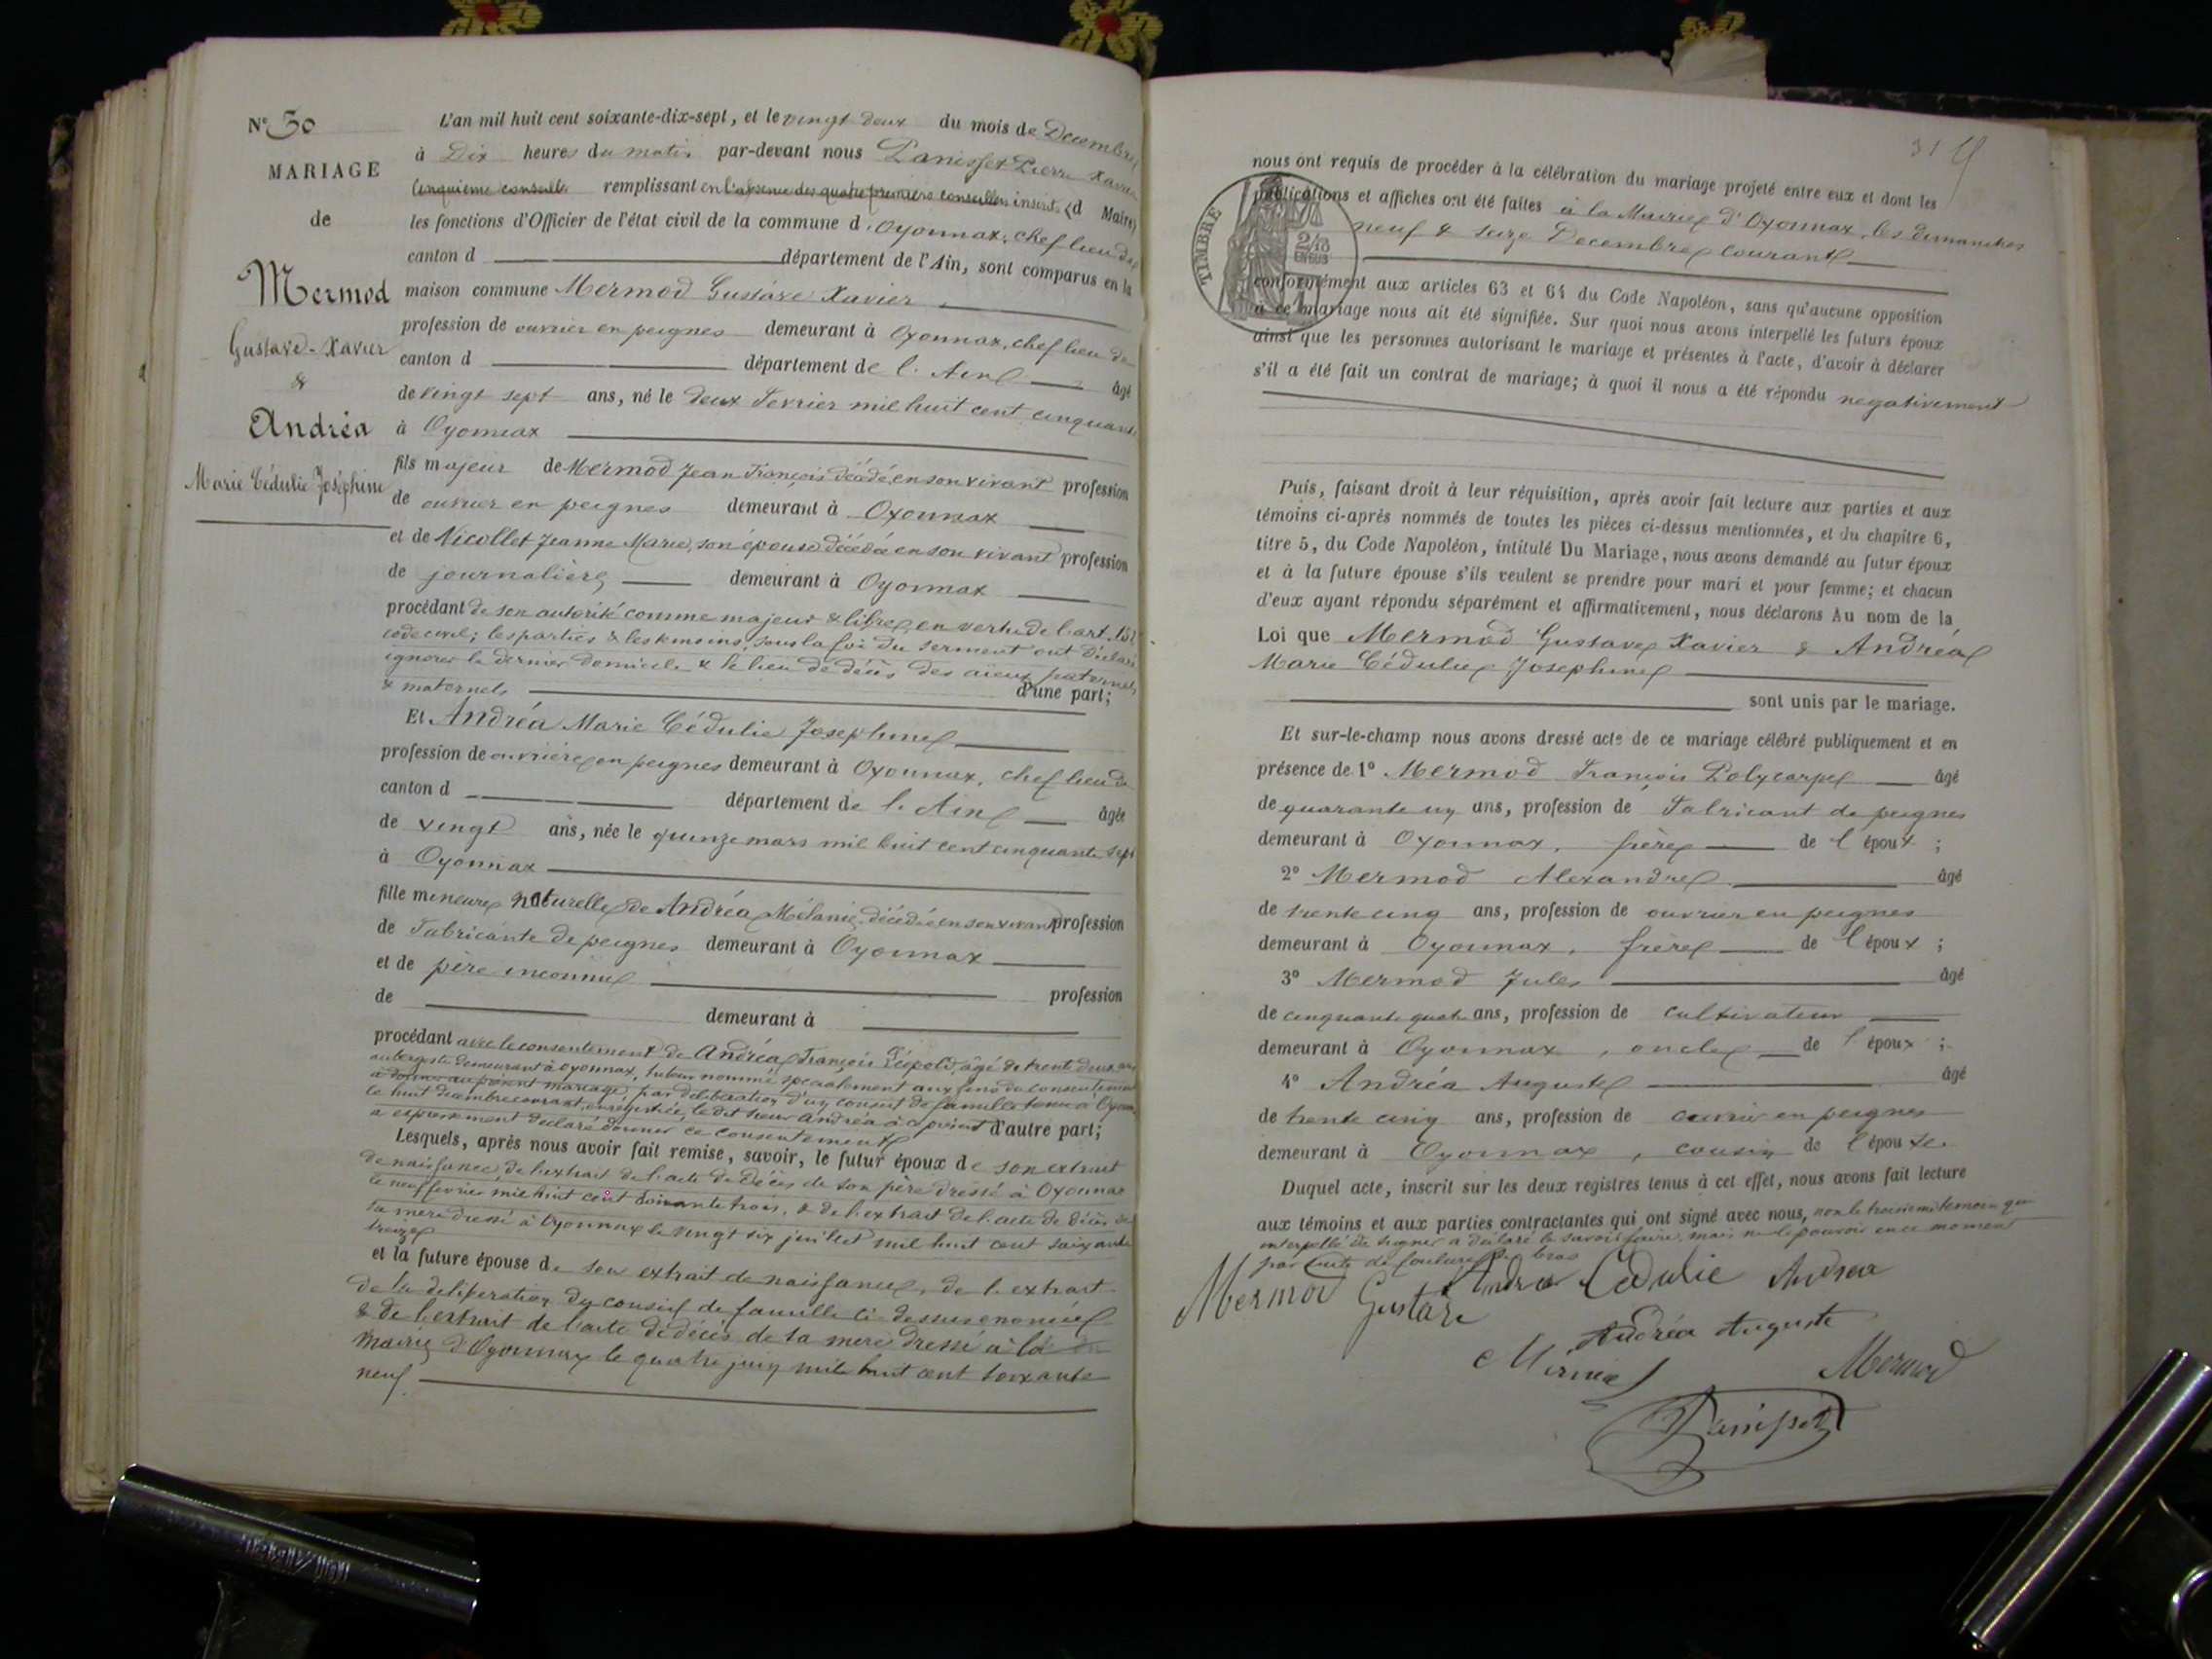 N° 30
MARIAGE
de
Mermod
Gustave-Xavier
&
Andréa
Marie Cédulie Joséphine
L'an mil huit cent soixante-dix-sept, et le vingt deux du mois de Decembre
à Dix heures du matin par-devant nous Panisset Pierre Xavier
Cinquieme conseiller remplissant en l'absence des quatre premiers conseillers inscrits (d Maire)
les fonctions d'Officier de l'état civil de la commune d'Oyonnax, chef lieu de
canton d département de l'Ain, sont comparus en la
maison commune Mermod Gustave Xavier
profession de ouvrier en peignes demeurant à Oyonnax, chef lieu de
canton d département de l'Ain âgé
de vingt sept ans, né le deux Fevrier mil huit cent cinquante
à Oyonnax
fils majeur de Mermod Jean François décédé, en son vivant profession
de ouvrier en peignes demeurant à Oyonnax
et de Nicollet Jeanne Marie, son épouse décédée en son vivant profession
de journalière demeurant à Oyonnax
procédant de son autorité comme majeur & libre, en vertu de l'art. 152
code civil; les parties & les temoins, sous la foi du serment ont déclaré
ignorer le dernier domicile & le lieu de décès des aïeux paternels
& maternels d'une part;
Et Andréa Marie Cédulie Josephine
profession de ouvrière en peignes demeurant à Oyonnax, chef lieu de
canton d département de l'Ain âgée
de vingt ans, née le quinze mars mil huit cent cinquante sept
à Oyonnax
fille mineure naturelle de Andréa Mélanie, décédée en son vivant profession
de Fabricante de peignes demeurant à Oyonnax
et de père inconnu profession
de demeurant à
procédant avec le consentement de Andréa François Léopold, âgé de trente deux ans
aubergiste demeurant à Oyonnax, tuteur nommé specialement aux fins du consentement
à donner au présent mariage, par déliberation d'un conseil de famille tenu à Oyonnax
le huit decembre courant, enregistrée, le dit sieur Andréa à ce présent d'autre part;
a expressement déclaré donner ce consentement
Lesquels, après nous avoir fait remise, savoir, le futur époux de son extrait
de naissance, de l'extrait de l'acte de décès de son père dressé à Oyonnax
le neuf fevrier mil huit cent soixante trois, & de l'extrait de l'acte de décès de
sa mere dressé à Oyonnax le vingt six juillet mil huit cent soixante
treize
et la future épouse de son extrait de naissance, de l'extrait
de la deliberation du conseil de famille ci-dessus enoncée
& de l'extrait de l'acte de décès de sa mere dressé à la
Mairie d'Oyonnax le quatre juin mil huit cent soixante
neuf
31
TIMBRE
nous ont requis de procéder à la célébration du mariage projeté entre eux et dont les
publications et affiches ont été faites à la Mairie d'Oyonnax, les dimanches
neuf & seize Decembre courant
conformément aux articles 63 et 64 du Code Napoléon, sans qu'aucune opposition
à ce mariage nous ait été signifiée. Sur quoi nous avons interpellé les futurs époux
ainsi que les personnes autorisant le mariage et présentes à l'acte, d'avoir à déclarer
s'il a été fait un contrat de mariage; à quoi il nous a été répondu negativement
Puis, faisant droit à leur réquisition, après avoir fait lecture aux parties et aux
témoins ci-après nommés de toutes les pièces ci-dessus mentionnées, et du chapitre 6,
titre 5, du Code Napoléon, intitulé Du Mariage, nous avons demandé au futur époux
et à la future épouse s'ils veulent se prendre pour mari et pour femme; et chacun
d'eux ayant répondu séparément et affirmativement, nous déclarons Au nom de la
Loi que Mermod Gustave Xavier & Andréa
Marie Cédulie Josephine
sont unis par le mariage.
Et sur-le-champ nous avons dressé acte de ce mariage célébré publiquement et en
présence de 1° Mermod François Polycarpe âgé
de quarante un ans, profession de Fabricant de peignes
demeurant à Oyonnax, frère de l'époux;
2° Mermod Alexandre âgé
de trente cinq ans, profession de ouvrier en peignes
demeurant à Oyonnax, frère de l'époux;
3° Mermod Jules âgé
de cinquante quatre ans, profession de cultivateur
demeurant à Oyonnax, oncle de l'époux;
4° Andréa Auguste âgé
de trente cinq ans, profession de ouvrier en peignes
demeurant à Oyonnax, cousin de l'épouse.
Duquel acte, inscrit sur les deux registres tenus à cet effet, nous avons fait lecture
aux témoins et aux parties contractantes qui ont signé avec nous, non le troisieme temoin qui
interpellé de signer a déclaré le savoir faire, mais ne le pouvoir en ce moment
par suite de foulure du bras
Mermod Gustave
Andréa Cédulie Andréa
Andréa Auguste
Mermod
Panisset